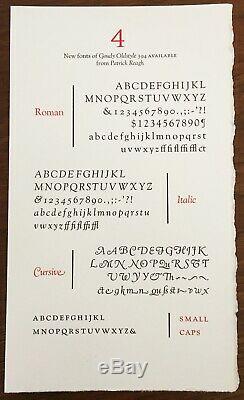 4
New fonts of Goudy Oldstyle 394 AVAILABLE
from Patrick Reagh
Roman
ABCDEFGHIJKL
MNOPQRSTUVWXYZ
&1234567890.,;:-'?!
$1234567890¶
abcdefghijklmnopqrst
uvwxyzffflffifflfict
ABCDEFGHIJKL
MNOPQRSTUVWXYZ
&1234567890.,;:-'?!
abcdefghijklmnopqrst
uvwxyzffflffifflfi
Italic
Cursive
ABCDEFGHIJK
LMNOPQRST
UVWYYTh
SMALL
CAPS
ABCDEFGHIJKL
MNOPQRSTUVWXYZ&